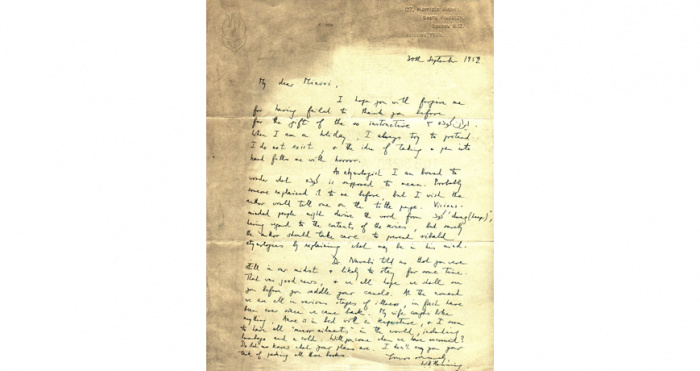 30th September 1952
My dear Minovi,
I hope you will forgive me
for having failed to thank you before
for the gift of the so instructive
When I am on holiday, I always try to pretend
I do not exist, & the idea of taking a pen into
hand fills me with horror.
As etymologist I am bound to
wonder what is supposed to mean. Probably
someone explained it to me before, but I wish the
author would tell one on the title page. Vicious-
minded people might derive the word from
having regard to the contents of the series, but surely
the author should take care to prevent ribald
etymologies by explaining what may be in his mind.
Dr. Navabi told us that you were
still in our midst & likely to stay for some time.
That very good news, & we all hope we shall see
you before you saddle your camels. At the moment
we are all in various stages of illness, in fact have
been ever since we came back. My wife coughs like
anything, is in bed with a temperature, & I seem
to have all "minor ailments" in the world, including
lumbago and a cold. Will you come when we have recovered?
Do let us know what your plans are. I don't envy you your
task of packing all those books.
Yours sincerely,